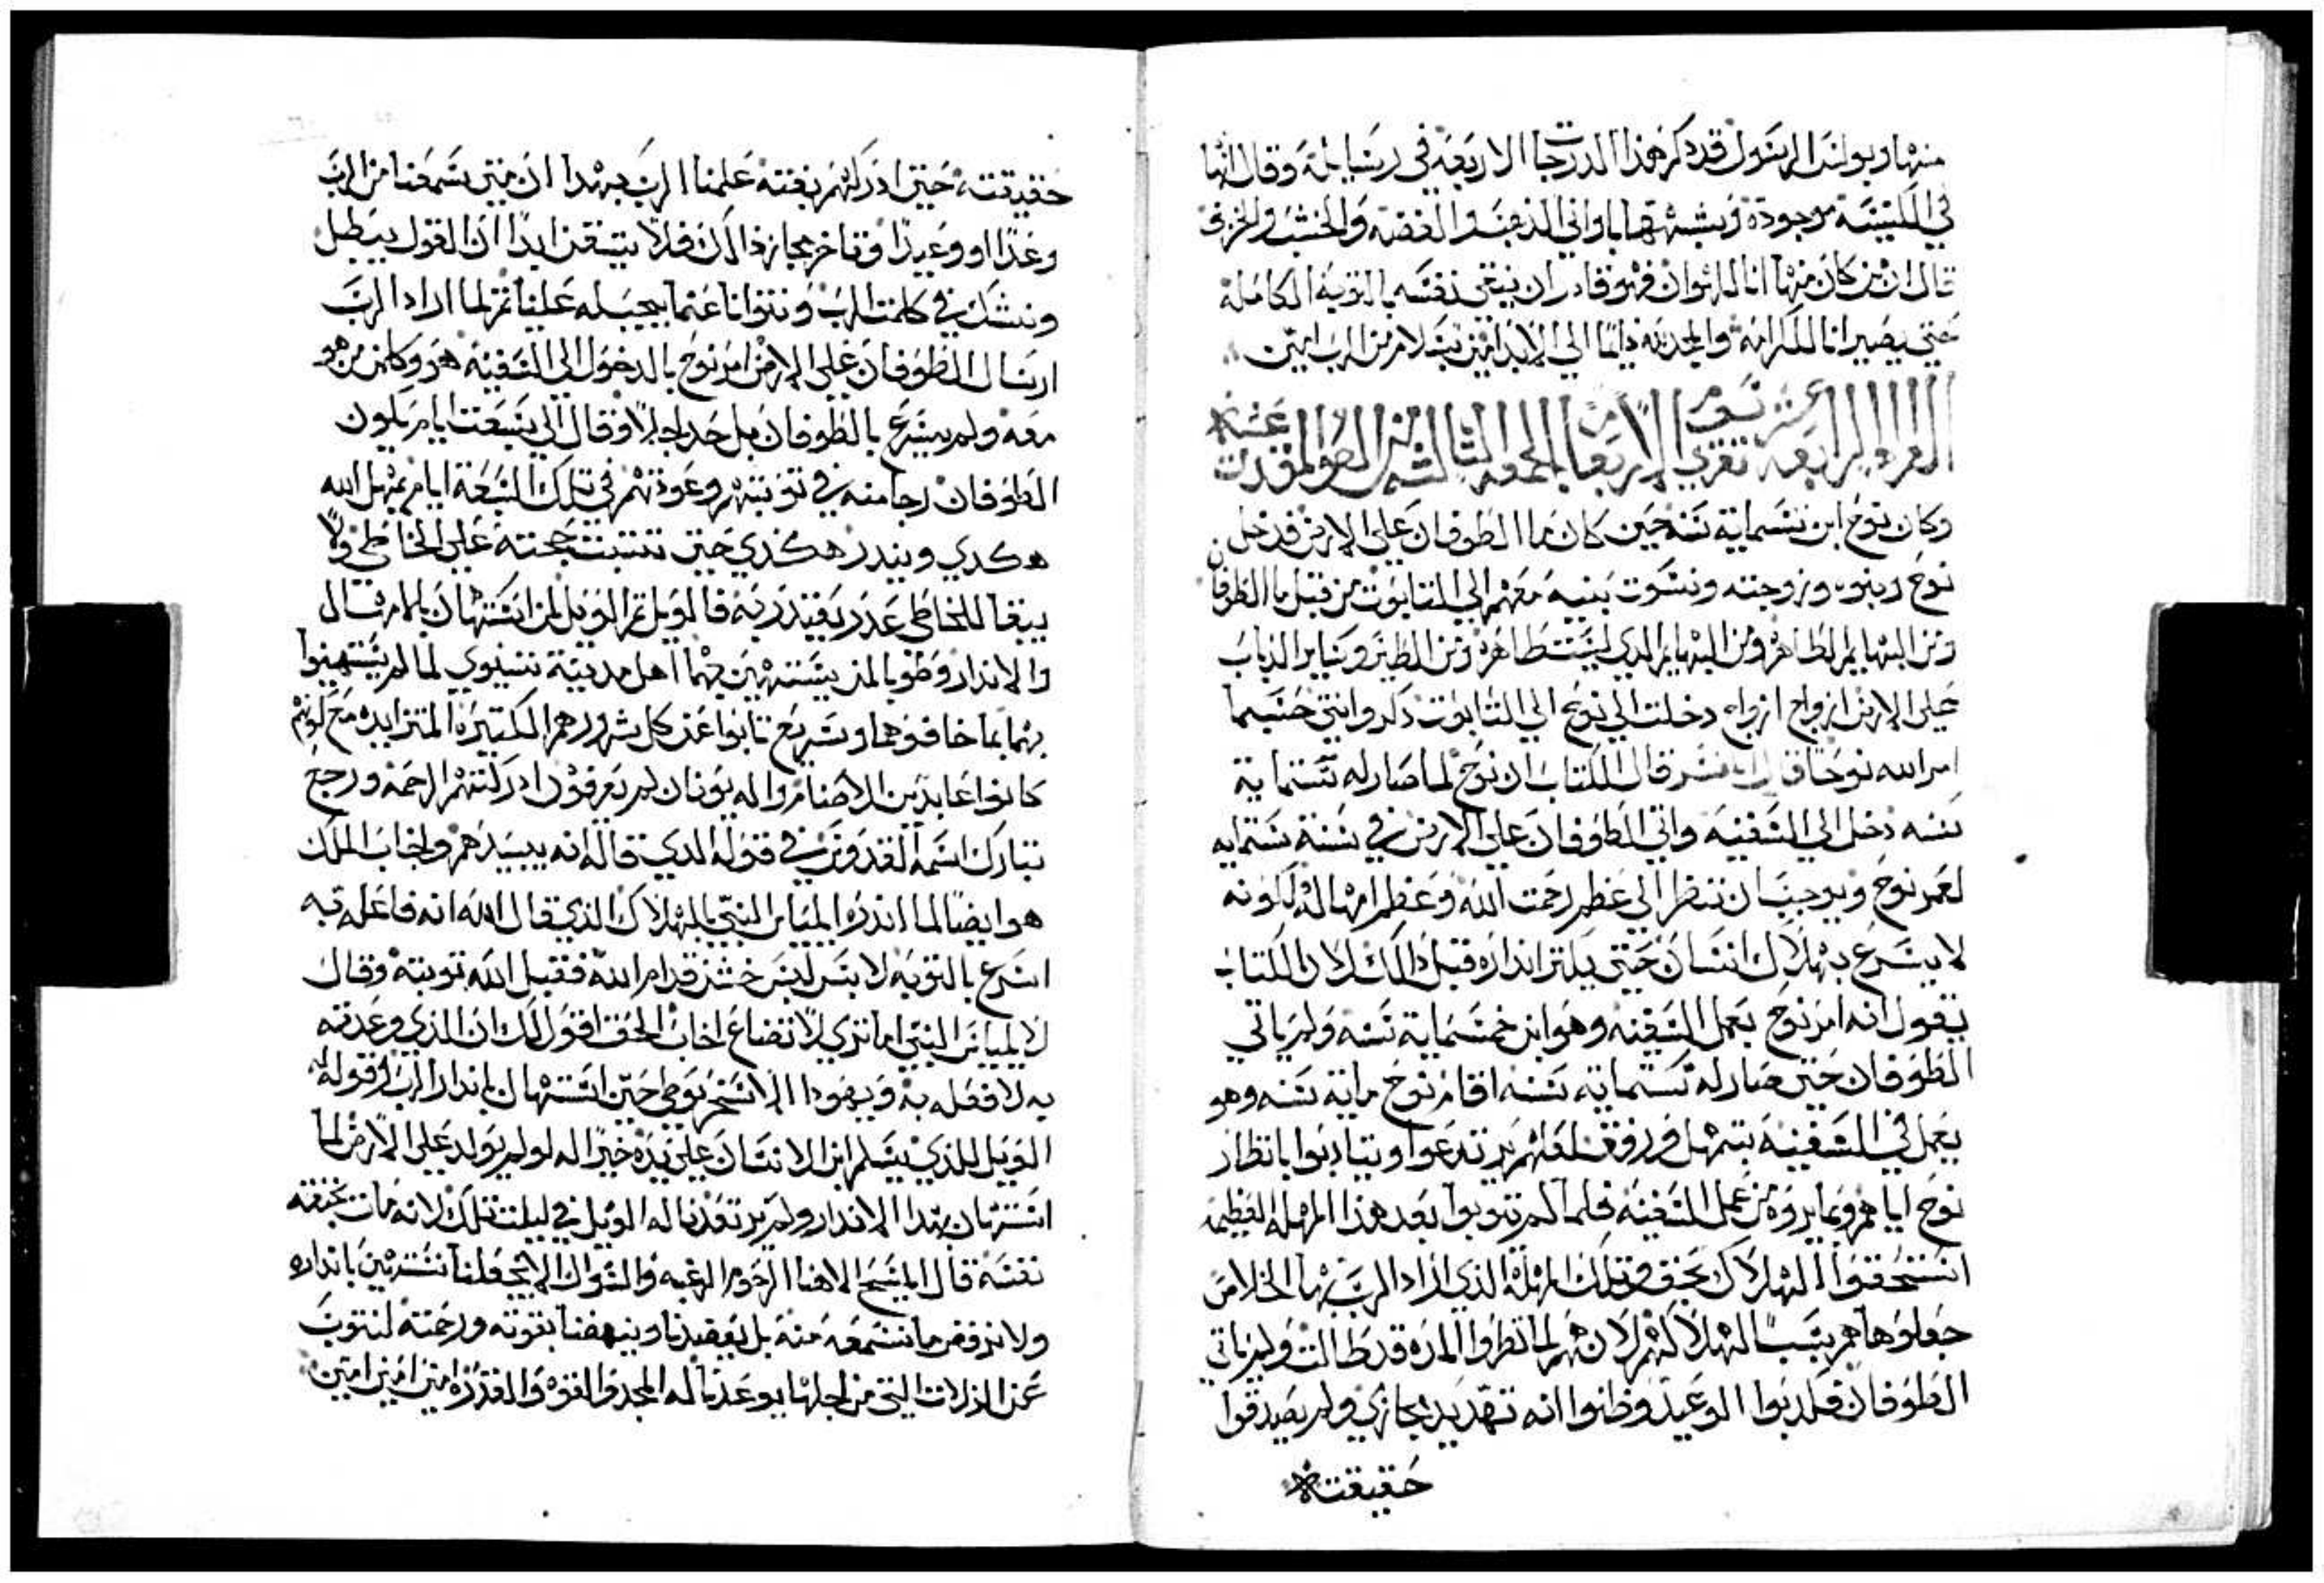 منها وبولس الرسول قد ذكر هذا الدرجات الاربعه في رسايله وقال انها
في الكنيسة موجودة وشبهها باواني الذهب والفضه والخشب والخزف
قال ان من كان منها انا للهوان فهو قادر ان ينقي نفسه بالتوبه الكاملة
حتي يصير انا للكرامه والحمد لله دايمًا الي الابد امين بسلام من الرب امين
القراه الرابعة عشر تقري يوم الاربعا من الجمعه الثالثة من الصوم المقدس
وكان نوح ابن ستماية سنه حين كان ما الطوفان علي الارض فدخل
نوح وبنوه وزوجته ونسوت بنيه معهم الي التابوت من قبل ما الطوفان
ومن البهايم الطاهره ومن البهايم الدي ليست طاهره ومن الطير وساير الدباب
علي الارض ازواج ازواج دخلت الي نوح الي التابوت دكر وانتي حسبما
امر الله نوحًا قال المفسر قال الكتاب ان نوح لما صار له ستماية
سنه دخل الي السفينه واتي الطوفان علي الارض في سنة ستمايه
لعمر نوح ويوجب ان ننظر الي عظم رحمت الله وعظم امهاله لكونه
لا يسرع بهلاك انسان حتي يكتر انداره قبل دالك لان الكتاب
يقول انه امر نوح بعمل السفينه وهو ابن خمسماية سنه ولم ياتي
الطوفان حتي صار له ستماية سنه اقام نوح ماية سنه وهو
يعمل في السفينه بتمهل ورفق لعلهم يرتدعوا ويتادبوا بانظار
نوح اياهم وبما يروه من عمل السفينه فلما لم يتوبوا بعد هذا المهله العظيمه
استحقوا الهلاك بحق وتلك المهله الذي اراد الرب بها الخلاص
جعلوها هم سبب الهلاك لهم لانهم لما نظروا المده قد طالت ولم ياتي
الطوفان فكدبوا الوعيد وظنوا انه تهديد مجازي ولم يصدقوا
حقيقته
حقيقته حتي ادركهم بغتة علمنا الرب بهدا ان متي سمعنا من الرب
وعدًا او وعيدًا وتاخر مجاز ذالك فلا نتيقن ابدًا ان القول يبطل
ونشك في كلمت الرب ونتوانا عما يجب له علينا تم لما اراد الرب
ارسال الطوفان علي الارض امر نوح بالدخول الي السفينه هو وكلمن هو
معه ولم يسرع بالطوفان بل حد اجلاً وقال الي سبعت ايام يكون
الطوفان رجا منه في توبتهم وعودتهم في تلك السبعة ايام يمهل الله
هكدي ويندر هكذي حتي تتبت حجته علي الخاطي ولا
يبقا للخاطي عدر يعتدر به فالويل تم الويل لمن استهان بالامتال
والاندار وطوبا لمن يستهين بهما اهل مدينة نينوي لما لم يستهينوا
بهما بما خافوهما وسريع تابوا عن كل شرورهم الكتيرة المتزايده مع كونهم
كانوا عابدين الاصنام واله يونان لم يعرفوه ادركتهم الرحمة ورجع
تبارك اسمه القدوس في قوله الدي قاله انه يبيدهم واخاب الملك
هو ايضًا لما اندره الياس النبي بالهلاك الذي قال الله انه فاعله به
اسرع بالتوبه لابس لبس خشن قدام الله فقبل الله توبته وقال
لايلياس النبي اما تري اتضاع اخاب الحق اقول لك ان الذي وعدته
به لا فعله به ويهودا الاسخريوطي حين استهان باندار الرب وقوله
الويل للذي يسلم ابن الانسان علي يده خير اله لو لم يولد علي الارض لما
استهان بهدا الاندار ولم يرتعد ناله الويل في ليلت تلك لانه مات بخنقه
نفسه قال المسيح الاهنا الرحوم الرغبه والسوال الا يجعلنا نستهين بانداره
ولا نرفض ما نسمعه منه بل يعضدنا وينهضنا بقوته ورحمته لنتوب
عن الزلات التي من اجلها يوعدنا له المجد والقوه والقدره امين امين امين